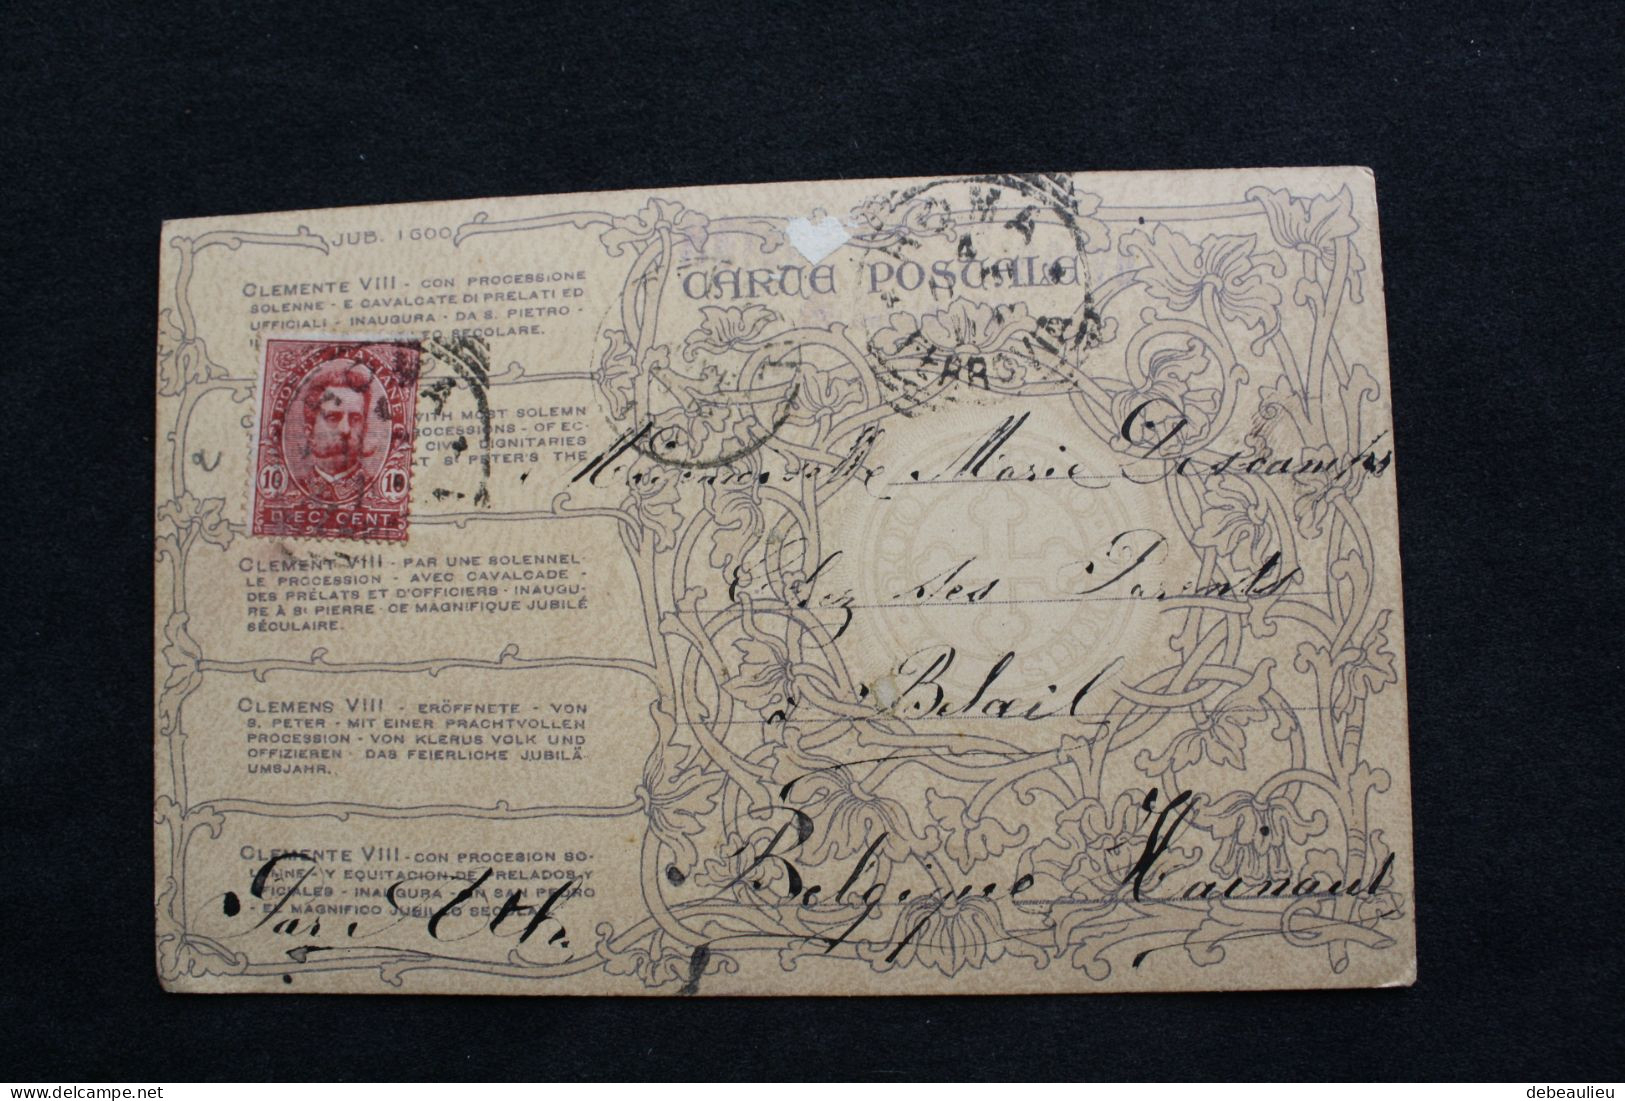 JUB. 1600
CLEMENTE VIII - CON PROCESSIONE
SOLENNE - E CAVALCATE DI PRELATI ED
UFFICIALI - INAUGURA - DA S. PIETRO -
SECOLARE.
POSTE ITALIANE
10 10
DIECI CENT
WITH MOST SOLEMN
PROCESSIONS - OF EC-
CIVIL DIGNITARIES
AT ST PETER'S THE
CLEMENT VIII - PAR UNE SOLENNEL-
LE PROCESSION - AVEC CAVALCADE -
DES PRÉLATS ET D'OFFICIERS - INAUGU-
RE À ST PIERRE - CE MAGNIFIQUE JUBILÉ
SÉCULAIRE.
CLEMENS VIII - ERÖFFNETE - VON
S. PETER - MIT EINER PRACHTVOLLEN
PROCESSION - VON KLERUS VOLK UND
OFFIZIEREN - DAS FEIERLICHE JUBILÄ-
UMSJAHR.
CLEMENTE VIII - CON PROCESION SO-
LENNE - Y EQUITACION DE PRELADOS Y
OFICIALES - INAUGURA - EN SAN PEDRO
- EL MAGNIFICO JUBILEO SECULA
Par Ath.
CARTE POSTALE
ROMA
FERROVIA
Mademoiselle Marie Descamps
Chez ses Parents
à Belail
Belgique Hainaut
debeaulieu